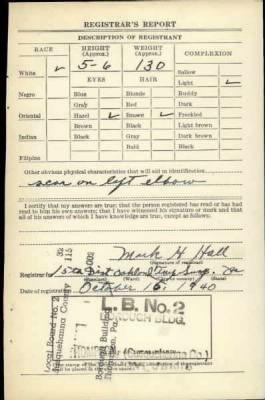 REGISTRAR'S REPORT
DESCRIPTION OF REGISTRANT
RACE
HEIGHT (Approx.)
WEIGHT (Approx.)
COMPLEXION
White ✓
5-6
130
Sallow
EYES
HAIR
Light ✓
Negro
Blue
Blonde
Ruddy
Gray
Red
Dark
Oriental
Hazel ✓
Brown ✓
Freckled
Brown
Black
Light brown
Indian
Black
Gray
Dark brown
Bald
Black
Filipino
Other obvious physical characteristics that will aid in identification
scar on left elbow
I certify that my answers are true; that the person registered has read or has had
read to him his own answers; that I have witnessed his signature or mark and that
all of his answers of which I have knowledge are true, except as follows:
Mark H Hall
(Signature of registrar)
Registrar for
Date of registration October 16, 1940
Local Board No. 2
Susquehanna County
Borough Building
L.B. No. 2
BOROUGH BLDG.